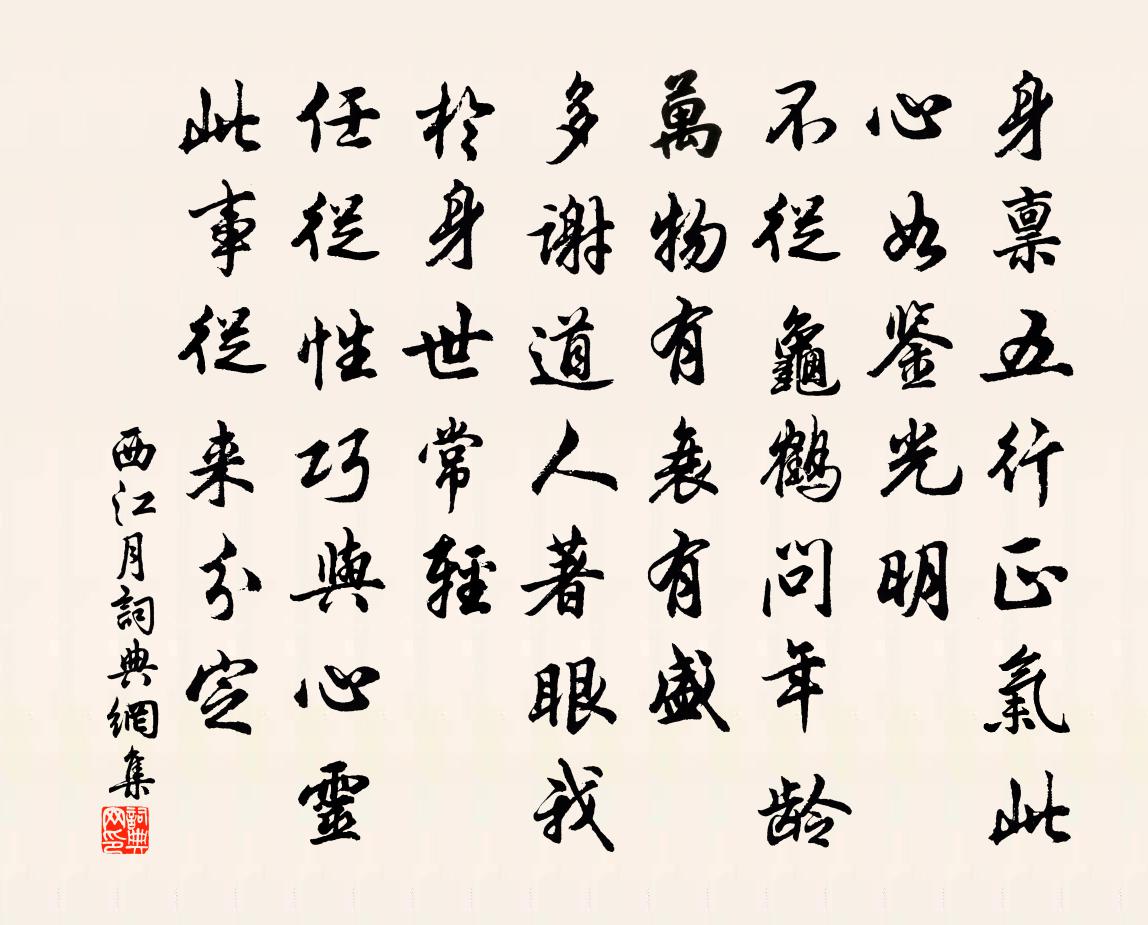 身禀五行正氣此
心如鉴光明
不從龜鶴問年齡
萬物有衰有盛
多謝道人著眼我
於身世常輕
任從性巧與心靈
此事從来分定
西江月詞典網集
詞典网印